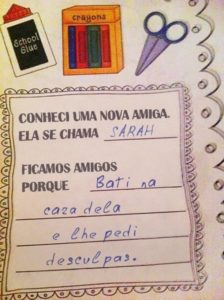 School
Glue
crayons
CONHECI UMA NOVA AMIGA.
ELA SE CHAMA SARAH
FICAMOS AMIGOS
PORQUE Bati na
cara dela
e lhe pedi
desculpas.